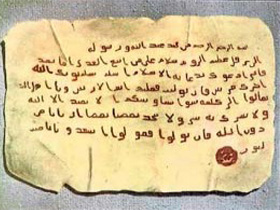 بسم الله الرحمن الرحيم من محمد عبد الله ورسوله
الى هرقل عظيم الروم سلام على من اتبع الهدى اما بعد
فانى ادعوك بدعاية الاسلام اسلم تسلم يوتك الله
اجرك مرتين فان توليت فعليك اثم
تعالوا الى كلمة سوا بيننا وبينكم الا نعبد الا الله
ولا نشرك به شيا ولا يتخذ بعضنا بعضا اربابا من
دون الله فان تولوا فقولوا اشهدوا بانا مس
لمون